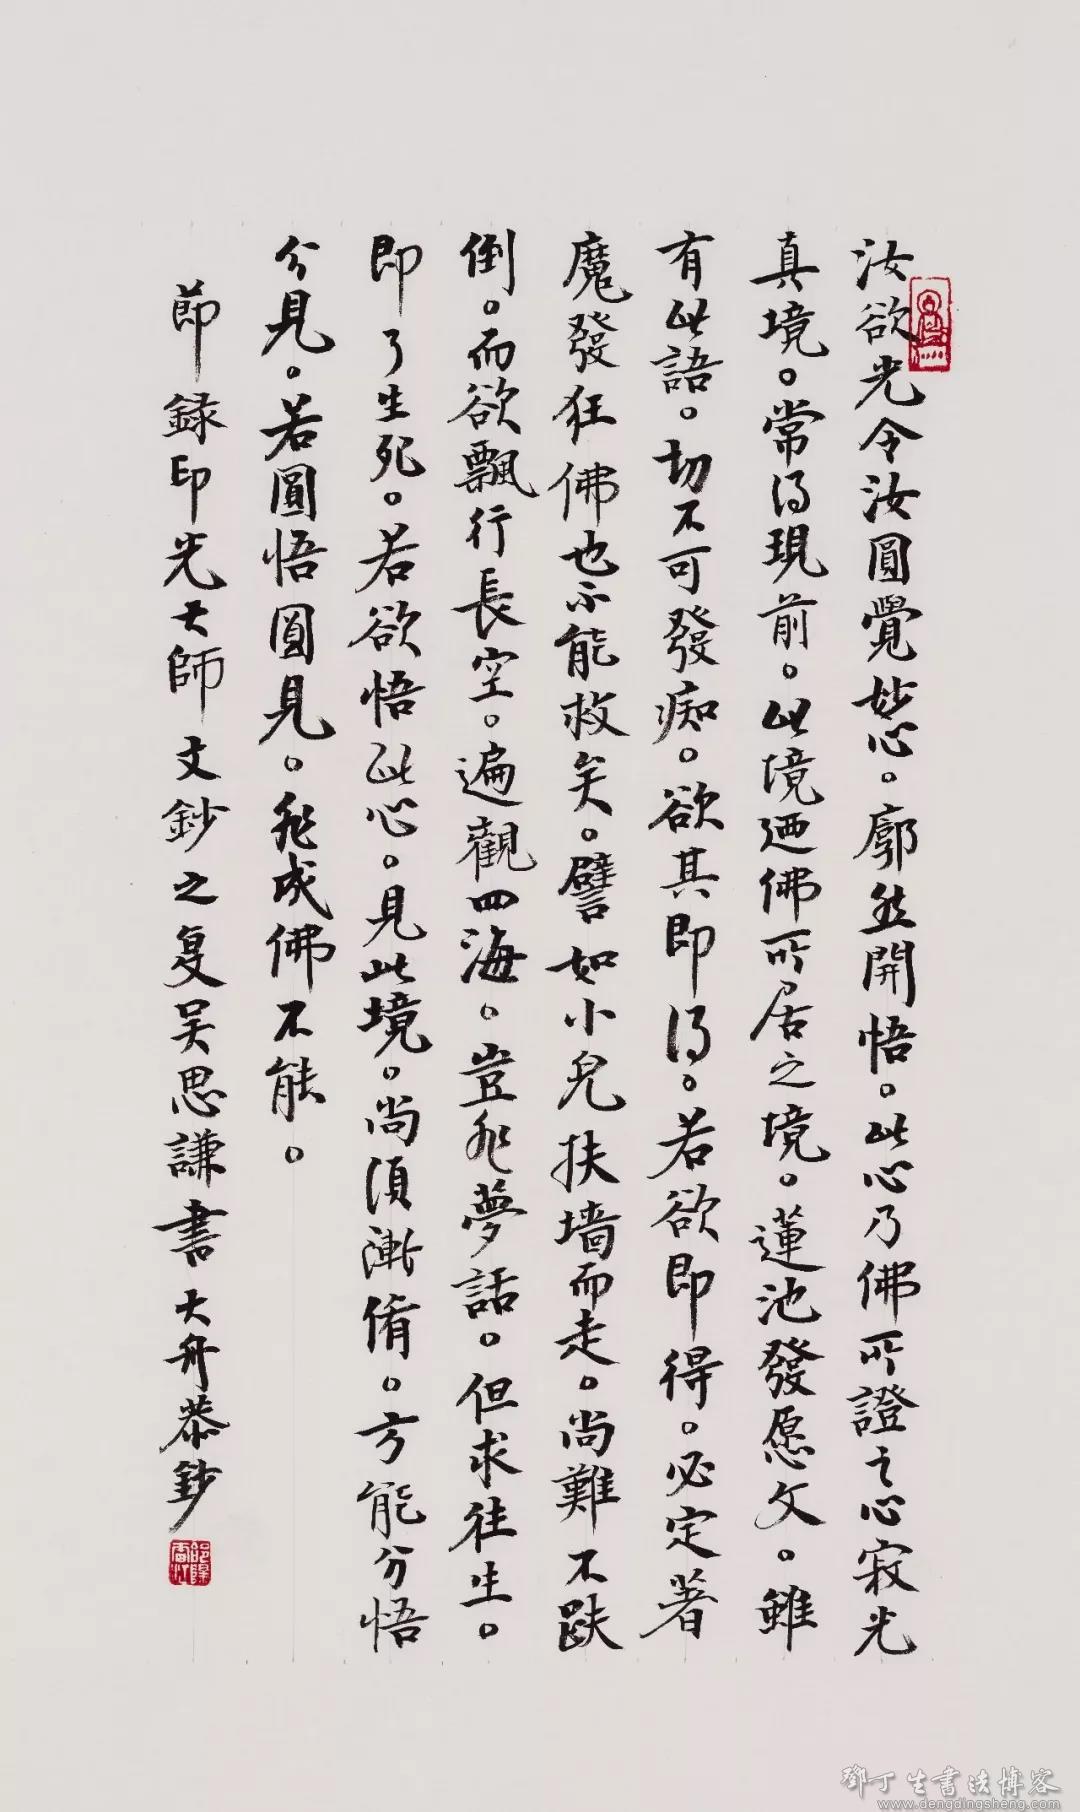 汝欲光令汝圓覺妙心。廓然開悟。此心乃佛所證之心寂光
真境。常得現前。此境迺佛所居之境。蓮池發愿文。雖
有此語。切不可發痴。欲其即得。若欲即得。必定著
魔發狂佛也不能救矣。譬如小兒扶墙而走。尚難不跌
倒。而欲飄行長空。遍觀四海。豈非夢話。但求往生。
即了生死。若欲悟此心。見此境。尚須漸脩。方能分悟
分見。若圓悟圓見。非成佛不能。
節録印光大師文鈔之复吴思謙書 大舟恭鈔
鄧丁生書法博客
www.dengdingsheng.com